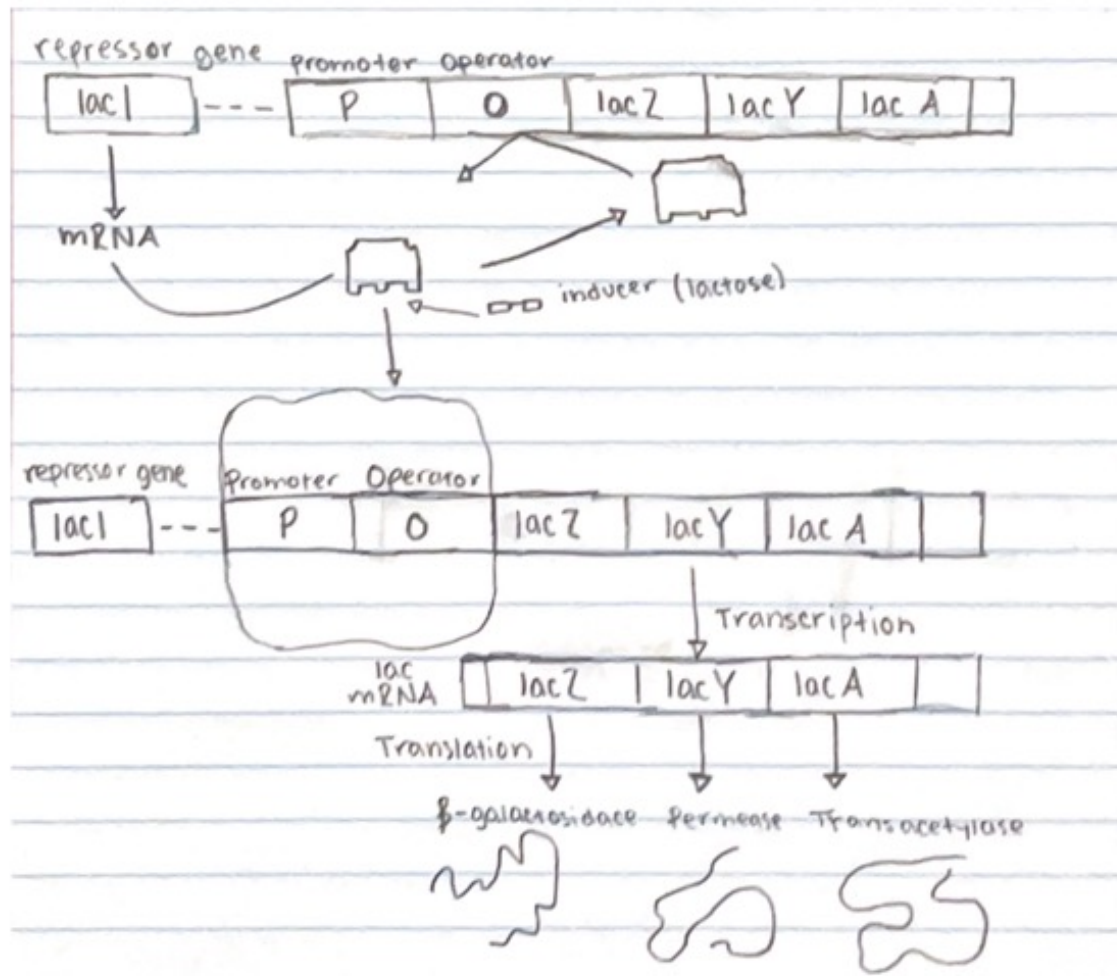 repressor gene promoter operator
lacI P O lacZ lacY lac A
mRNA
inducer (lactose)
repressor gene Promoter Operator
lacI P O lacZ lacY lac A
Transcription
lac
mRNA lacZ lacY lac A
Translation
β-galactosidace Permease Transacetylase